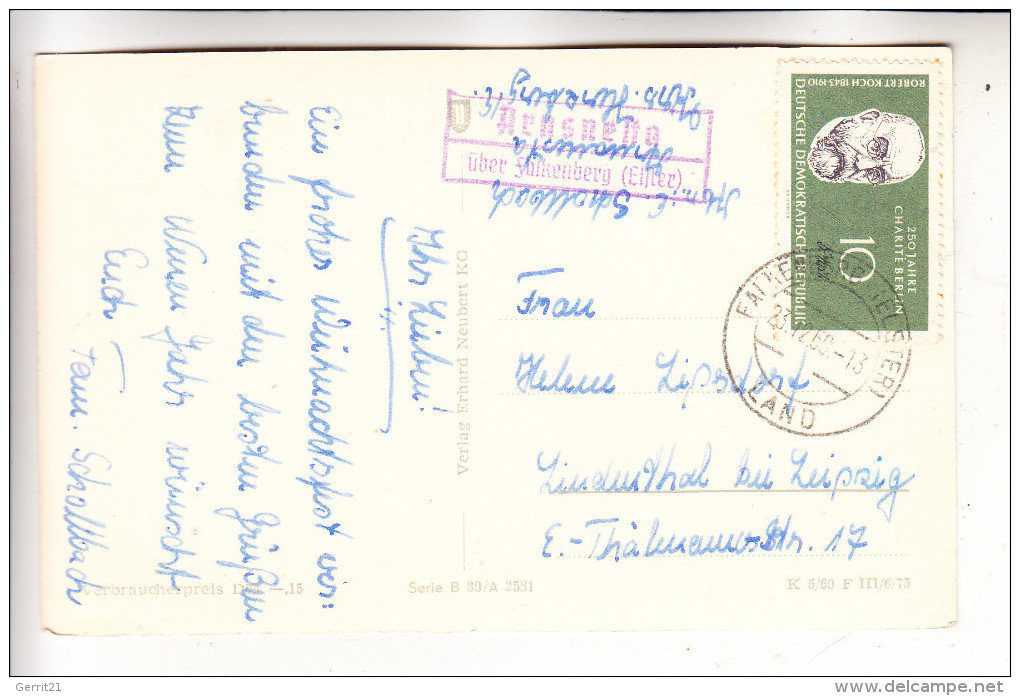 Ihr Lieben!
Ein frohes Weihnachtsfest ver:
bunden mit den besten Grüßen
zum Neuen Jahr wünscht
Euch
Fam. Schollbach
Verbraucherpreis DM —,15
Verlag Erhard Neubert KG
Serie B 30/A 2531
K 5/60 F III/6/75
Schollbach
Krs. Herzberg/E.
Arnsnesta
über Falkenberg (Elster)
ROBERT KOCH 1843-1910
DEUTSCHE DEMOKRATISCHE REPUBLIK
250 JAHRE
CHARITÉ BERLIN
10
FALKENBERG (ELSTER)
LAND
Frau
Helene Lipsdorf
Lindenthal bei Leipzig
E.-Thälmann-Str. 17
Gerrit21
www.delcampe.net